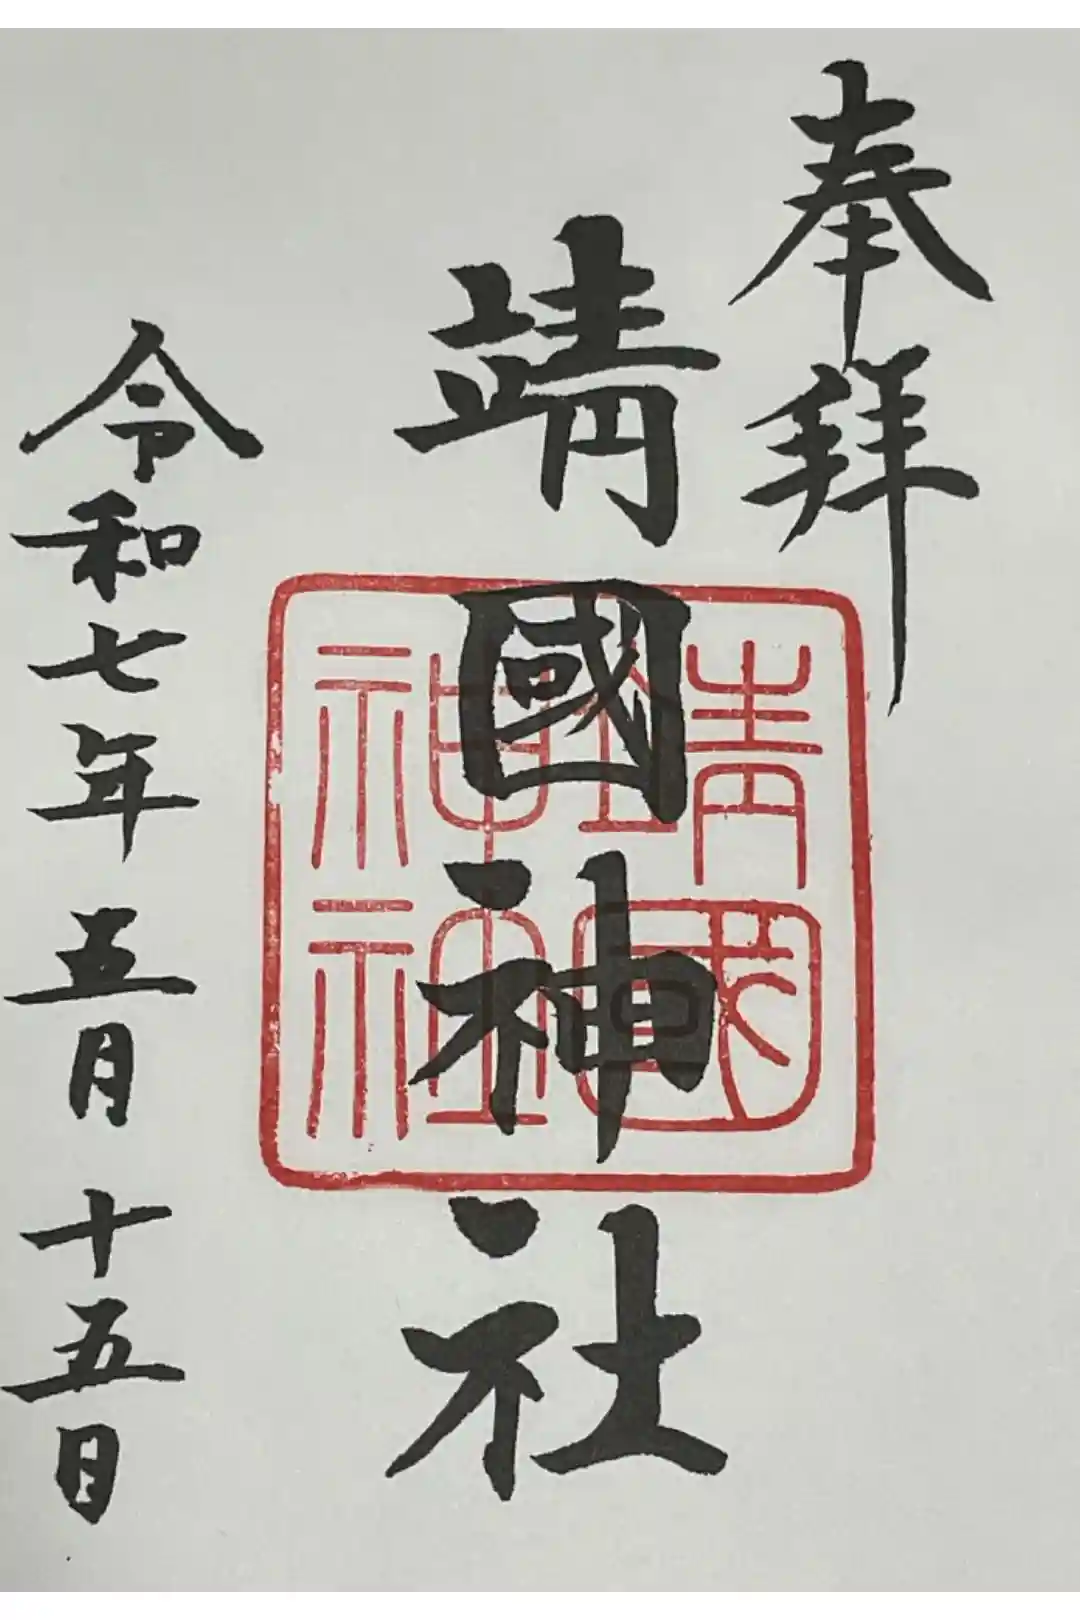 奉拜
靖國神社
令和七年五月十五日
靖國
神社